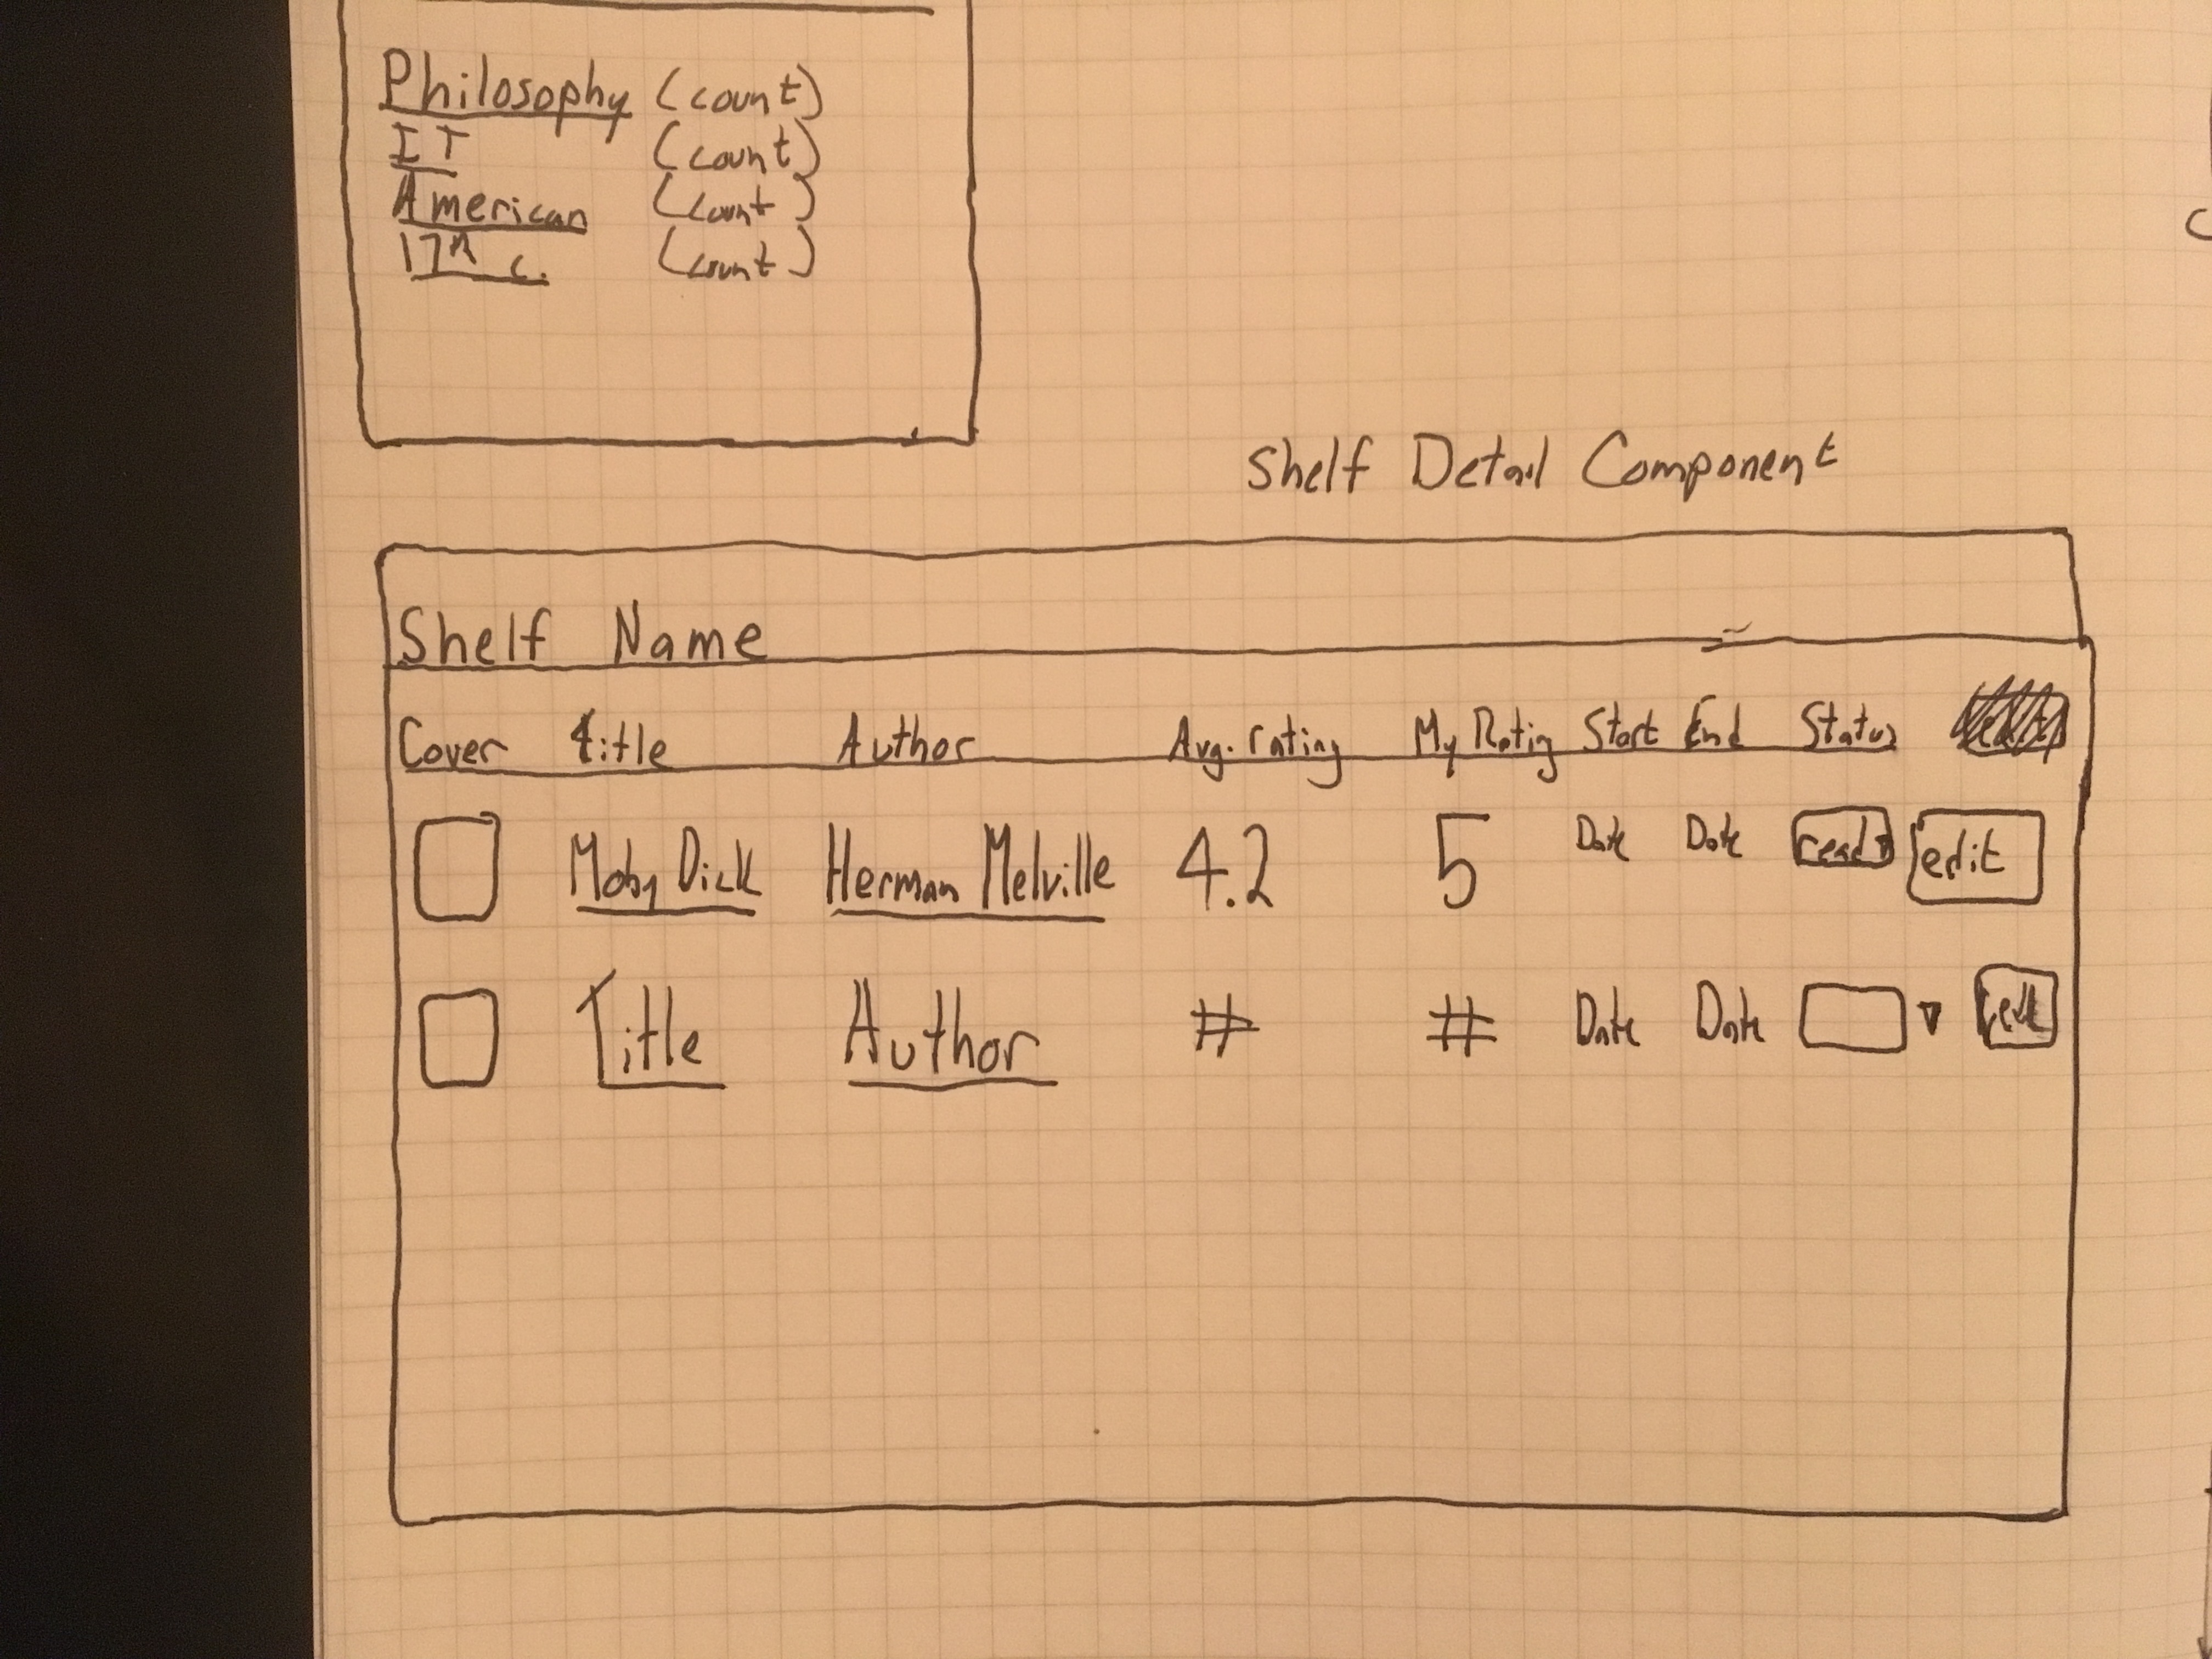 Philosophy (count)
IT (count)
American (count)
17th c. (count)
Shelf Detail Component
Shelf Name
Cover title Author Avg. rating My Rating Start End Status
Moby Dick Herman Melville 4.2 5 Date Date read edit
Title Author # # Date Date